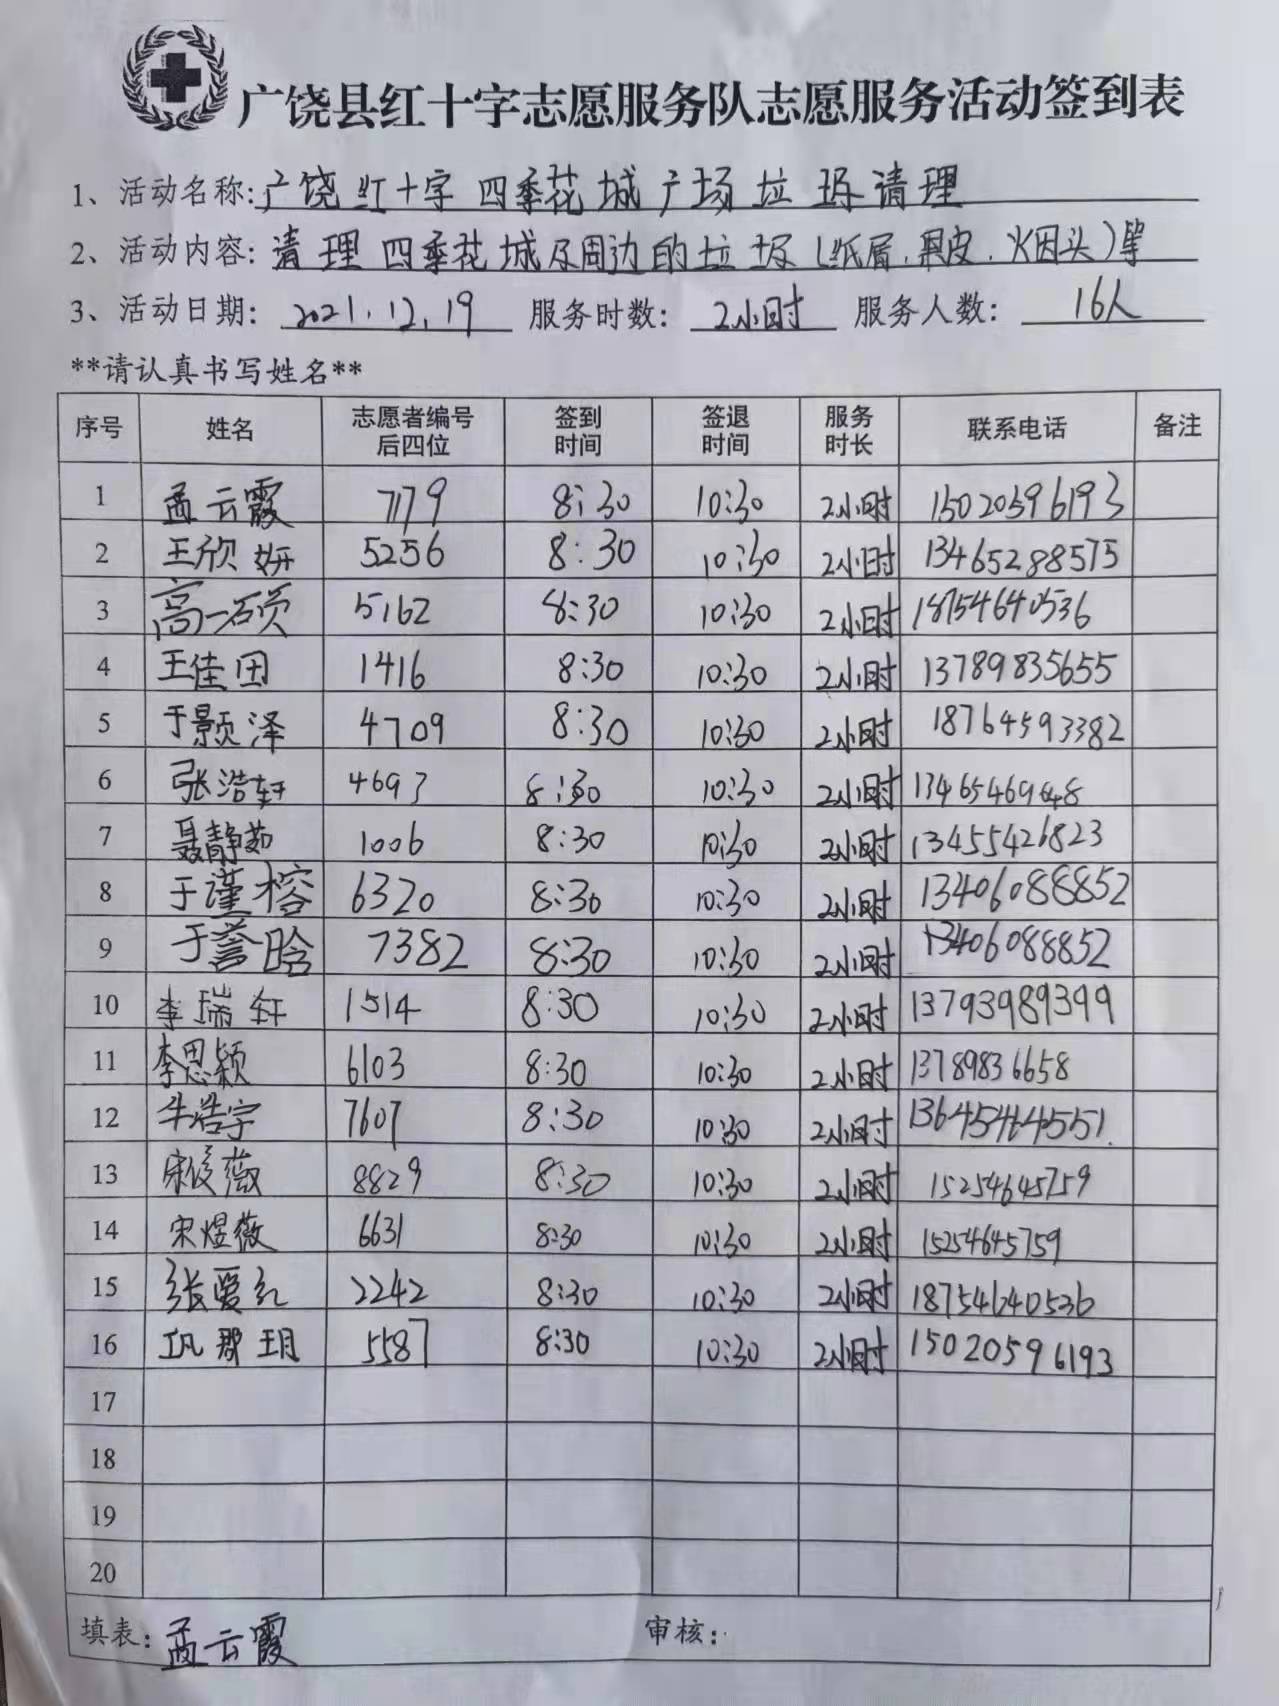 广饶县红十字志愿服务队志愿服务活动签到表
1、活动名称:广饶红十字四季花城广场垃圾清理
2、活动内容:清理四季花城及周边的垃圾(纸屑、果皮、烟因头)等
3、活动日期: 2021.12.19 服务时数: 2小时 服务人数: 16人
**请认真书写姓名**
序号 姓名 志愿者编号后四位 签到时间 签退时间 服务时长 联系电话 备注
1 孟云霞 7179 8:30 10:30 2小时 15020596193
2 王欣妍 5256 8:30 10:30 2小时 13465288575
3 高一硕 5162 8:30 10:30 2小时 18754640536
4 王佳田 1416 8:30 10:30 2小时 13789835655
5 于颢泽 4709 8:30 10:30 2小时 18764593382
6 张浩轩 4693 8:30 10:30 2小时
7 聂静茹 1006 8:30 10:30 2小时 13455426823
8 于瑾榕 6320 8:30 10:30 2小时 13406088852
9 于誉晗 7382 8:30 10:30 2小时 13406088852
10 李瑞轩 1514 8:30 10:30 2小时 13793989399
11 李思颖 6103 8:30 10:30 2小时 13789836658
12 牛浩宇 7607 8:30 10:30 2小时
13 8829 8:30 10:30 2小时 15254645759
14 宋煜薇 6631 8:30 10:30 2小时 15254645759
15 张爱红 2242 8:30 10:30 2小时 18754640536
16 巩郡玥 5587 8:30 10:30 2小时 15020596193
17
18
19
20
填表: 孟云霞 审核: